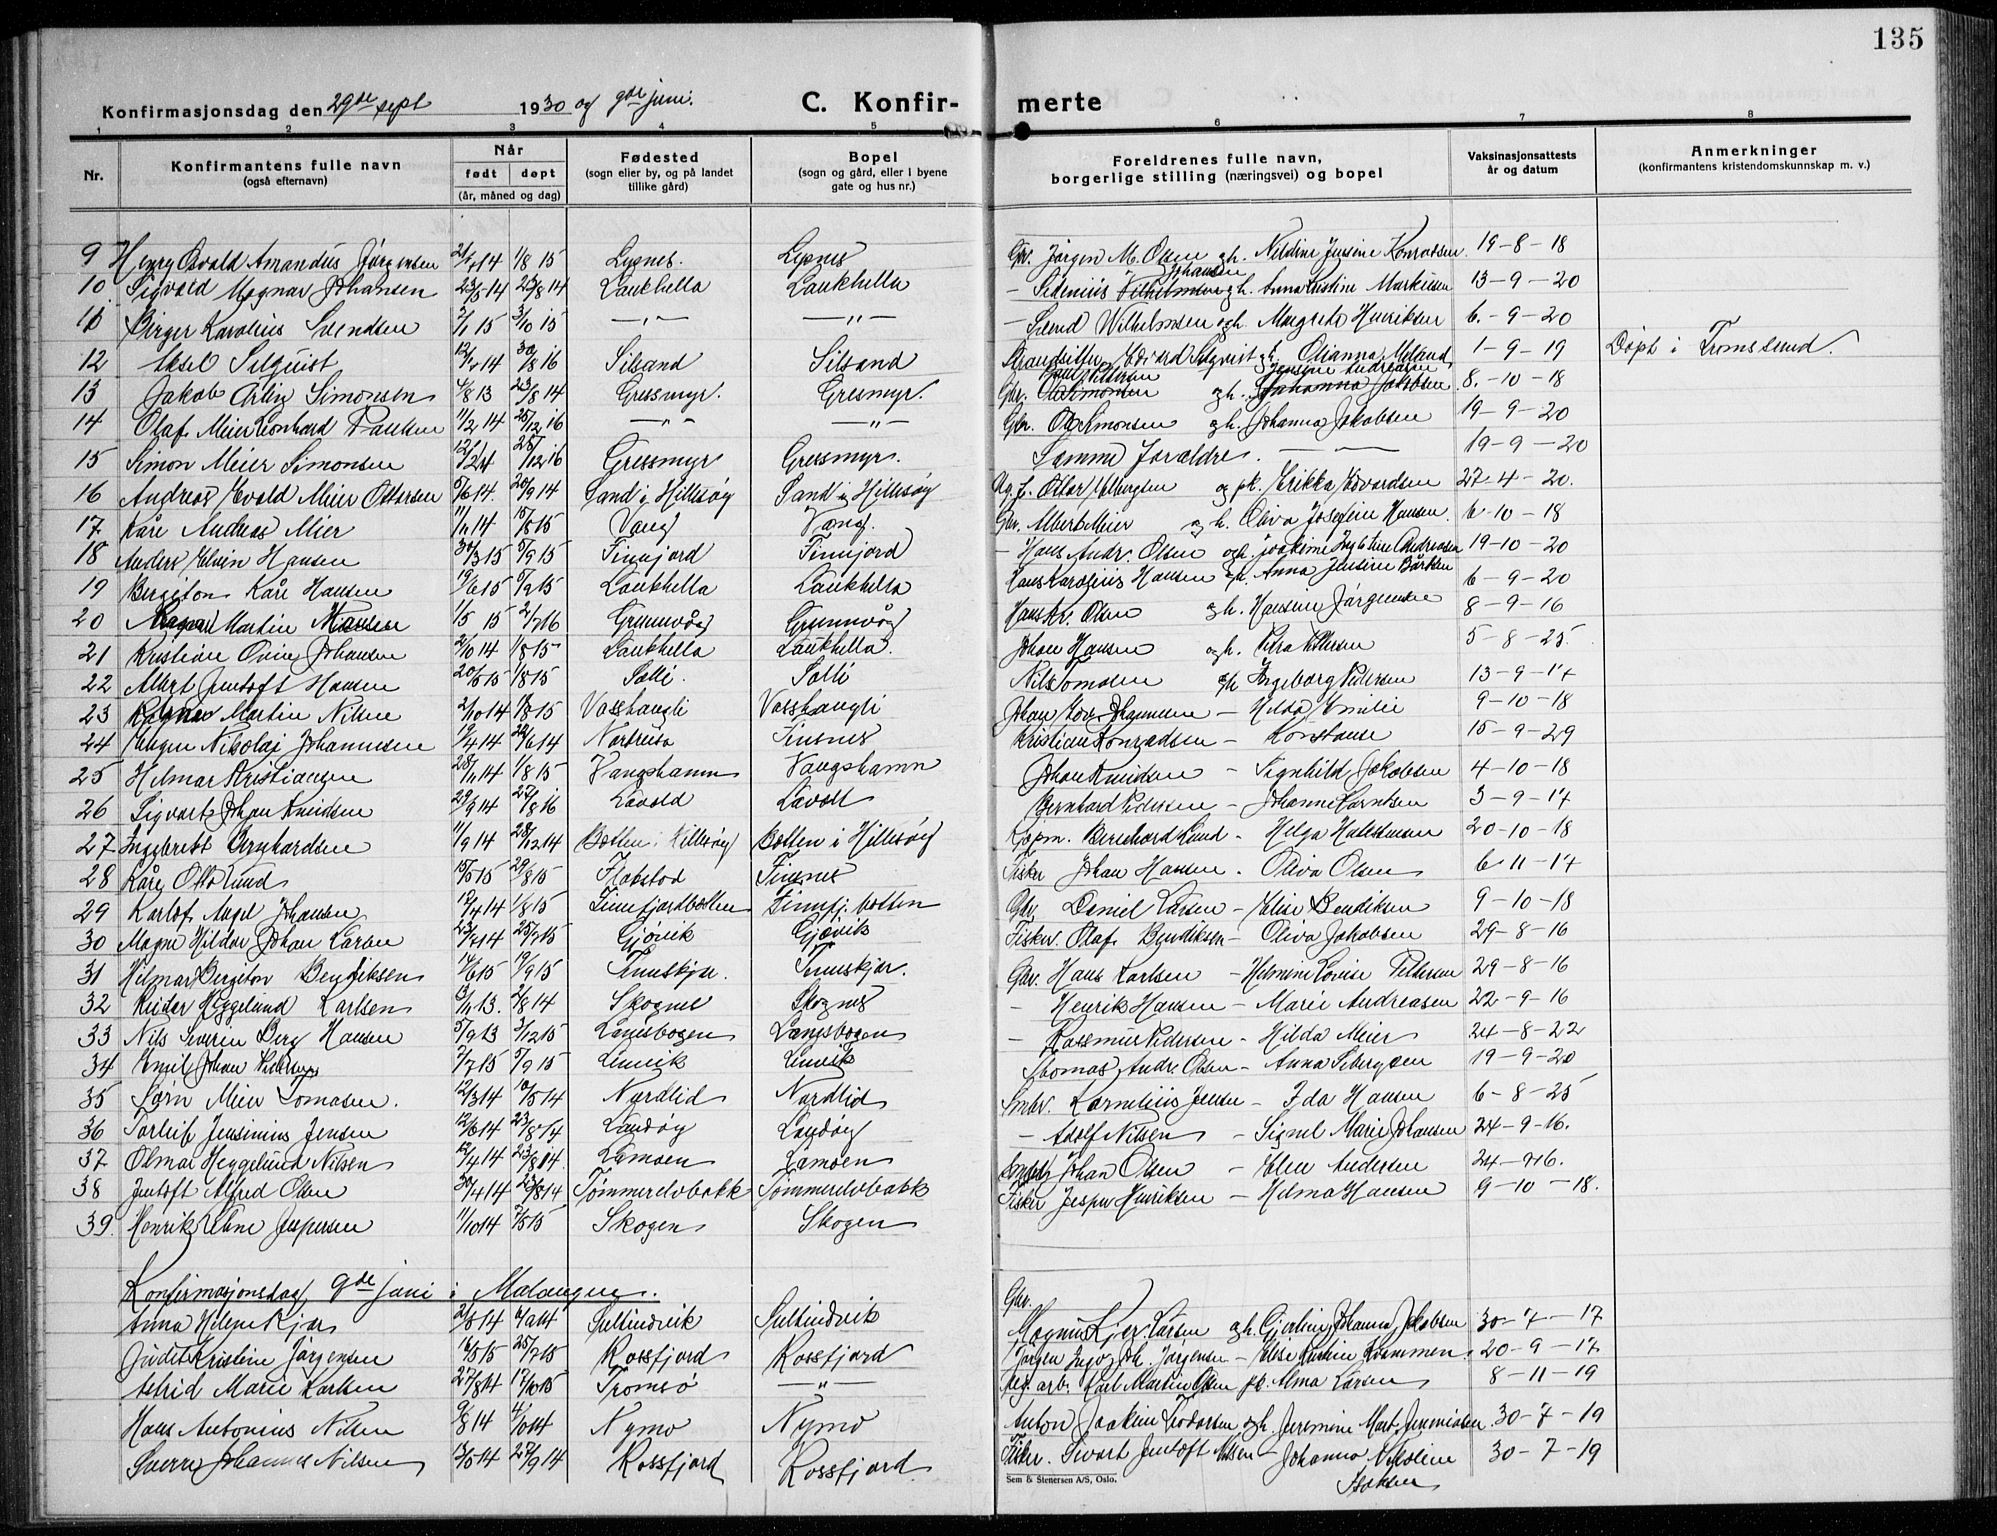 135
Konfirmasjonsdag den 29de sept 1930 og 9de juni.
C. Konfir- merte
1 2 3 4 5 6 7 8
Nr.
Konfirmantens fulle navn
(også efternavn)
Når
født døpt
(år, måned og dag)
Fødested
(sogn eller by, og på landet
tillike gård)
Bopel
(sogn og gård, eller i byene
gate og hus nr.)
Foreldrenes fulle navn,
borgerlige stilling (næringsvei) og bopel
Vaksinasjonsattests
år og datum
Anmerkninger
(konfirmantens kristendomskunnskap m. v.)
9 Henry Osvald Amandus Jørgensen 1/8 15 Lysnes. Lysnes Gbr. Jørgen M. Olsen gh. Nildine Jensine Konradsen 19-8-18
10 Sigvald Magnar Johansen 23/5 14 23/8 14 Laukhella Laukhella - Sidenius Johansen gh. Anna Kristine Markusen 13-9-20
11 Birger Karolius Svendsen 2/1 15 3/10 15 -"- -"- - Svend Wilhelmsen og h. Margrete Henriksen 6-9-20
12 Aksel Selquist 30/8 16 Silsand Silsand Strandsitter Edvard Selqvist gh. Olianna Meland 1-9-19 Døpt i Tromsøsund.
13 Jakob Arling Simonsen 4/8 13 23/8 14 Gressmyr. Gresmyr. Gbr. og h. Jensine Andreasen 8-10-18
14 Olaf Meier Leonhard Paulsen 11/2 14 25/12 16 -"- -"- Gbr. Ole Simonsen og h. Johanna Jakobsen 19-9-20
15 Simon Meier Simonsen 25/12 16 Gressmyr Gressmyr. Samme foreldre. 19-9-20
16 Andreas Evald Meier Ottarsen 5/6 14. 20/9 14 Sand i Hillesøy Sand i Hillesøy Ottar Elbergsen og pk. Erikka Edvardsen 27-4-20.
17 Kåre Andreas Meier 11/11 14 15/8 15 Vang Vang. Gbr. Albert Meier og h. Oliva Josefine Hansen 6-10-18
18 Anders Elvin Hansen 30/3 15 5/9 15 Finnjord Finnjord - Hans Andr. Olsen og h. Joakime Ingertine Andreasen 19-10-20
19 Bergiton Kåre Hansen 19/6 15 5/9 15 Laukhella Laukhella Hans Karolius Hansen gh. Anna Jensine Bårdsen 6-9-20
20 Martin Hansen 1/5 15 2/7 16 Grunnvåg Grunnvåg Hans Kr. Olsen og h. Hansine Jørgensen 8-9-16
21 Kristian Oving Johansen 2/10 14 1/8 15 Laukhella Laukhella. Johan Hansen og h. Petra Pettersen 5-8-25
22 Albert Jentoft Hansen 20/5 15 1/8 15 Solli. Solli Nils Tomasen gh Ingeborg Pedersen 13-9-17
23 Ragnar Martin Nilsen 2/10 14 1/8 15 Vasshaugli Vasshaugli Johan Edv. Johannesen - Hilda Emilie 9-10-18
24 Nikolaj Johannesen 19/4 14 22/6 14 Nordreisa Finsnes Kristian Konradsen - Konstanse 15-9-29
25 Hilmar Kristiansen 28/11 14 1/8 15 Vangshamn Vangshamn Johan Knudsen - Signhild Jakobsen 4-10-18
26 Sigvart Johan Knudsen 29/9 14 27/8 16 Lavold Lavoll Bernhard Pedersen - Johanne Larntsen 3-9-17
27 Ingebrekt Bernhardsen 11/9 14 28/12 14 Botten i Hillesøy Botten i Hillesøy Kjøpm. Bernhard Lund - Helga Halstensen 20-10-18
28 Kåre Otto Lund 15/5 15 29/8 15 Flakstad Finsnes Fisker Johan Hansen - Oliva Olsen 6-11-17
29 Karlof Angel Johansen 12/4 14 1/8 15 Finnfjordbotten Finnfj. botten Gbr. Daniel Larsen - Elise Bendiksen 9-10-18
30 Magne Hildor Johan Larsen 25/7 15 Gjøvik Gjøvik Fisker. Olaf Bendiksen - Oliva Jakobsen 29-8-16
31 Hilmar Bergiton Bendiksen 14/6 15 19/9 15 Finneskjer. Finneskjer. Gbr. Hans Karlsen - Helmine Lovise Pettersen 29-8-16
32 Reidar Heggelund Karlsen 13/11 13. 2/8 14 Skognes Skognes - Henrik Hansen - Marie Andreasen 22-9-16
33 Nils Severin Berg Hansen 5/9 13 3/12 15 Langsbogen Langsbogen - Rasmus Pedersen - Hilda Meier 24-8-22
34 Emil Johan Pedersen 7/7 15 5/9 15 Lenvik Lenvik Thomas Andr. Olsen - Anna Sibergsen 19-9-20
35 Sørn Meier Tomasen. 12/3 14 10/5 14 Nordlid Nordlid Smbr. Kornelius Jensen - Ida Hansen 6-8-25
36 Torleif Jensinius Jensen 12/6 14 23/8 14 Landøy Landøy - Adolf Nilsen - Signel Marie Johansen 24-9-16.
37 Olmar Heggelund Nilsen 12/4 14 23/8 14. Lamoen Lamoen Johan Olsen - Elen Andersen 24-9-16.
38 Jentoft Alfred Olsen 30/4 14 23/8 14 Tømmerelvbakk Tømmerelvbakk Fisker Jesper Henriksen - Helma Hansen 9-10-18.
39. Henrik Jespersen 11/10 14 7/5 15 Skogen Skogen
Konfirmasjonsdag 9de juni i Malangen.
Anna Helene Kjær 21/5 14 Sultindvik Sultindvik Gbr. Magnus Kjær Larsen og h. Gjertine Johanna Jakobsen 30-7-17
Judit Kristine Jørgensen 16/5 15 25/7 15 Rossfjord Rossfjord Jørgen Ingv. Joh. Jørgensen - Else Kristine Kvammen 20-9-17
Astrid Marie Karlsen 27/8 14 17/10 15 Tromsø -"- Karl Martin Olsen pk. Alma Larsen 8-11-19
Hans Antonius Nilsen 9/8 14 4/10 14 Nymo Nymo Anton Joakim Teodorsen og h. Jeremine Mart. Jeremiasen 30-7-19
Sverre Johannes Nilsen 13/5 14 27/9 14 Rossfjord Rossfjord Fisker. Sivart Jentoft Nilsen - Johanna Nikoline Isaksen 30-7-19
Sem & Stenersen A/S, Oslo.